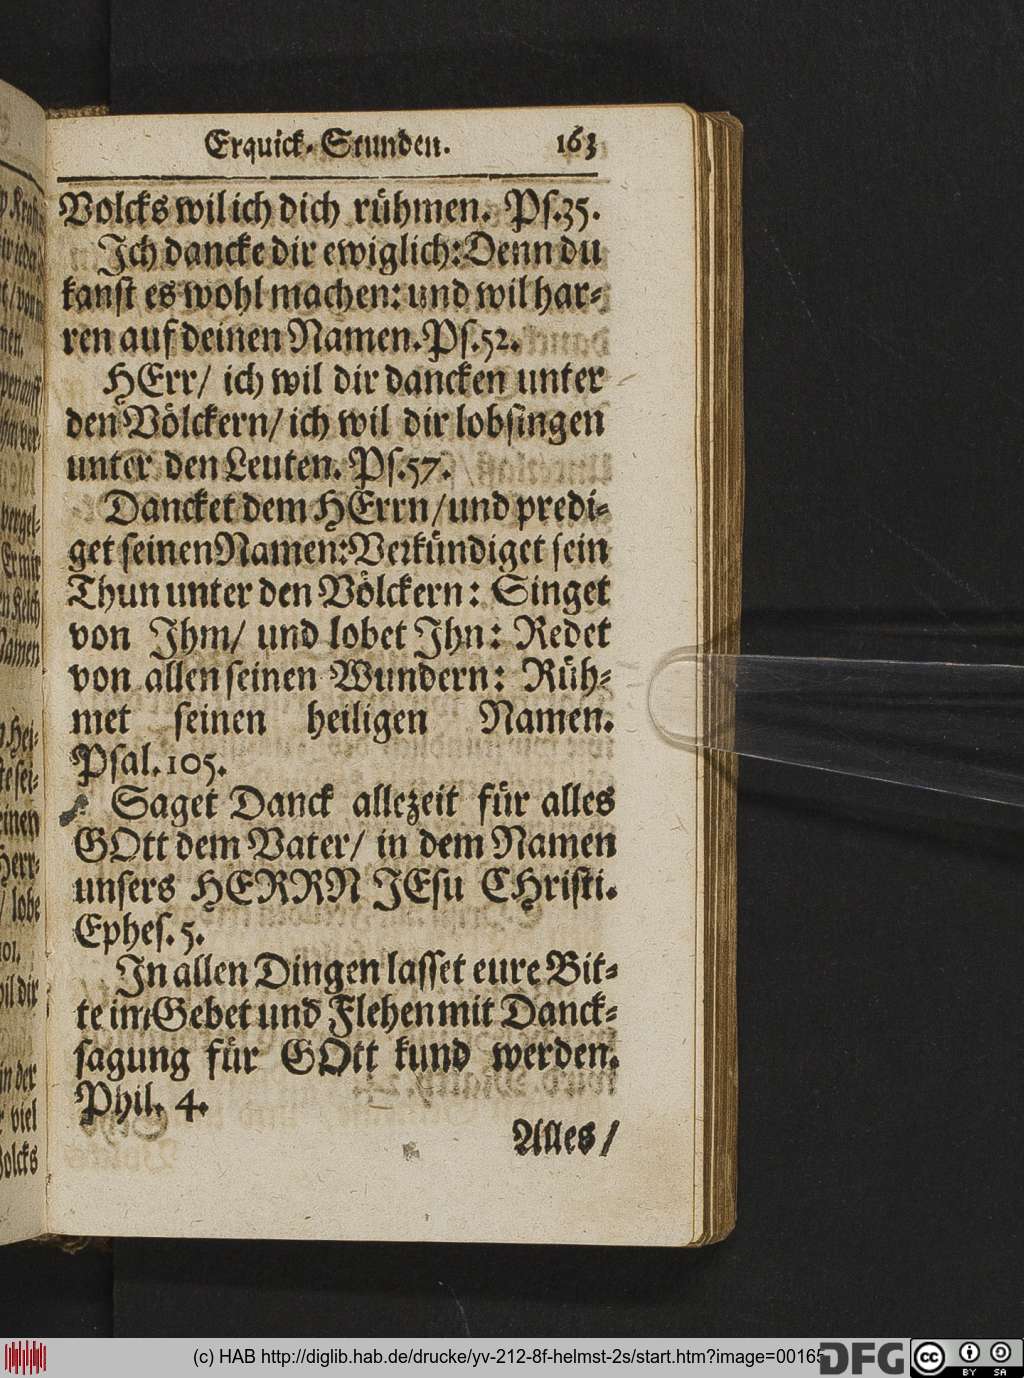 Erquick-Stunden. 163
Volcks wil ich dich rühmen. Ps.35.
Ich dancke dir ewiglich: Denn du
kanst es wohl machen: und wil har-
ren auf deinen Namen. Ps.52.
HErr/ ich wil dir dancken unter
den Völckern/ ich wil dir lobsingen
unter den Leuten. Ps.57.
Dancket dem HErrn/ und predi-
get seinen Namen: Verkündiget sein
Thun unter den Völckern: Singet
von Ihm/ und lobet Ihn: Redet
von allen seinen Wundern: Rüh-
met seinen heiligen Namen.
Psal. 105.
Saget Danck allezeit für alles
GOtt dem Vater/ in dem Namen
unsers HERRN JEsu CHristi.
Ephes. 5.
In allen Dingen lasset eure Bit-
te im Gebet und Flehen mit Danck-
sagung für GOtt kund werden.
Phil. 4.
Alles/
(c) HAB http://diglib.hab.de/drucke/yv-212-8f-helmst-2s/start.htm?image=00165
DFG
cc BY SA